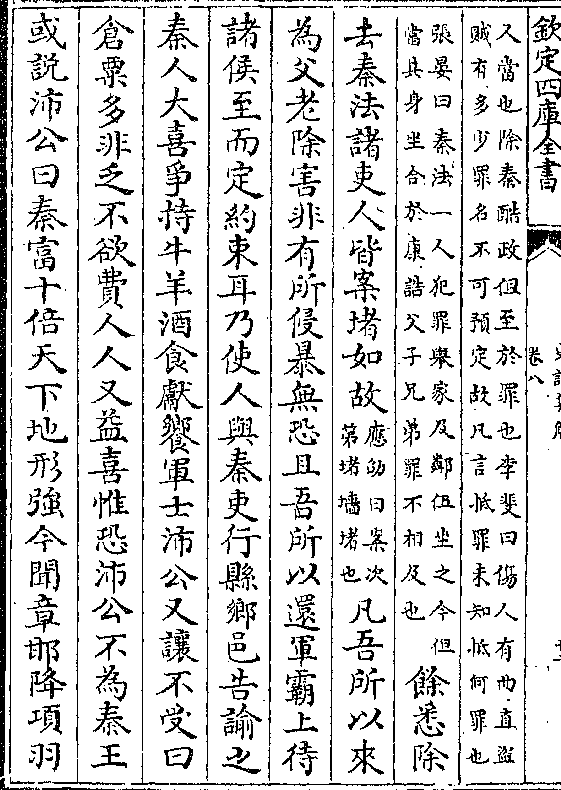 欽定四庫全書
卷八
人當也除秦酷政但至於罪也李斐曰傷人有曲直盜
賊有多少罪名不可預定故凡言抵罪未知抵何罪也
張晏曰秦法一人犯罪舉家及鄰伍坐之今但
當其身坐合於康誥父子兄弟罪不相及也
餘悉除
去秦法諸吏人皆案堵如故
應劭曰案次
第堵墻堵也
凡吾所以來
為父老除害非有所侵暴無恐且吾所以還軍霸上待
諸侯至而定約束耳乃使人與秦吏行縣鄉邑告諭之
秦人大喜爭持牛羊酒食獻饗軍士沛公又讓不受曰
倉粟多非乏不欲費人人又益喜惟恐沛公不為秦王
或説沛公曰秦富十倍天下地形強今聞章邯降項羽